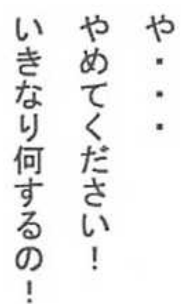 や・・・
やめてください！
いきなり何するの！